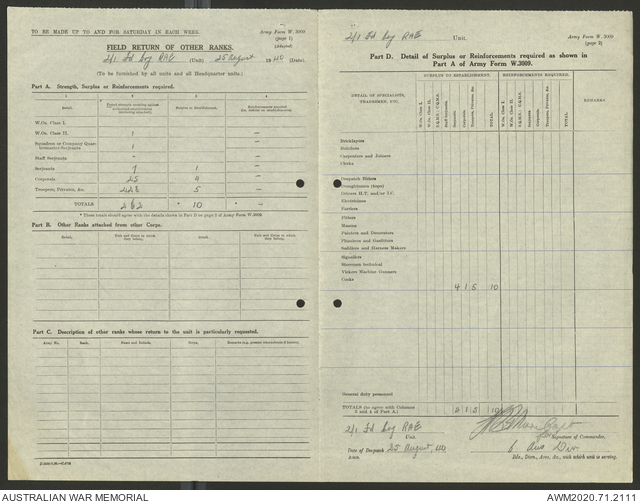 TO BE MADE UP TO AND FOR SATURDAY IN EACH WEEK.
Army Form W. 3009
(page 1)
(Adapted)
FIELD RETURN OF OTHER RANKS.
2/1 Fd Coy RAE (Unit) 25 August 1940 (Date).
(To be furnished by all units and all Headquarter units.)
Part A. Strength, Surplus or Reinforcements required.
Detail.
W.Os. Class I.
W.Os. Class II. 1 —
Squadron or Company Quartermaster-Serjeants 1 —
Staff Serjeants - —
Serjeants 7 1 —
Corporals 25 4 —
Troopers, Privates, &c. 228 5 —
TOTALS 262 * 10 * —
* These totals should agree with the details shown in Part D on page 2 of Army Form W. 3009.
Part B. Other Ranks attached from other Corps.
Detail. Unit and Corps to which they belong. Detail. Unit and Corps to which they belong.
Part C. Description of other ranks whose return to the unit is particularly requested.
Army No. Rank. Name and Initials. Corps.
2/1 Fd Coy RAE Unit.
Army Form W. 3009
(page 2)
Part D. Detail of Surplus or Reinforcements required as shown in
Part A of Army Form W.3009.
DETAIL OF SPECIALISTS, TRADESMEN, ETC.
SURPLUS TO ESTABLISHMENT.
REINFORCEMENTS REQUIRED.
REMARKS
W.Os. Class I.
W.Os. Class II.
Staff Serjeants
Serjeants
Corporals
Troopers, Privates, &c.
TOTAL
Bricklayers
Butchers
Carpenters and Joiners
Clerks
Despatch Riders
Draughtsmen (topo)
Drivers H.T. and/or I.C.
Electricians
Farriers
Fitters
Masons
Painters and Decorators
Plumbers and Gasfitters
Saddlers and Harness Makers
Signallers
Storemen technical
Vickers Machine Gunners
Cooks
4 1 5 10
General duty personnel
TOTALS (to agree with Columns 3 and 4 of Part A.) 4 1 5 10
2/1 Fd Coy RAE
Unit.
Capt
for Signature of Commander.
Date of Despatch 25 August, 1940
6 Aus Div
Bde., Divn., Area, &c., with which unit is serving.
AUSTRALIAN WAR MEMORIAL
AWM2020.71.2111